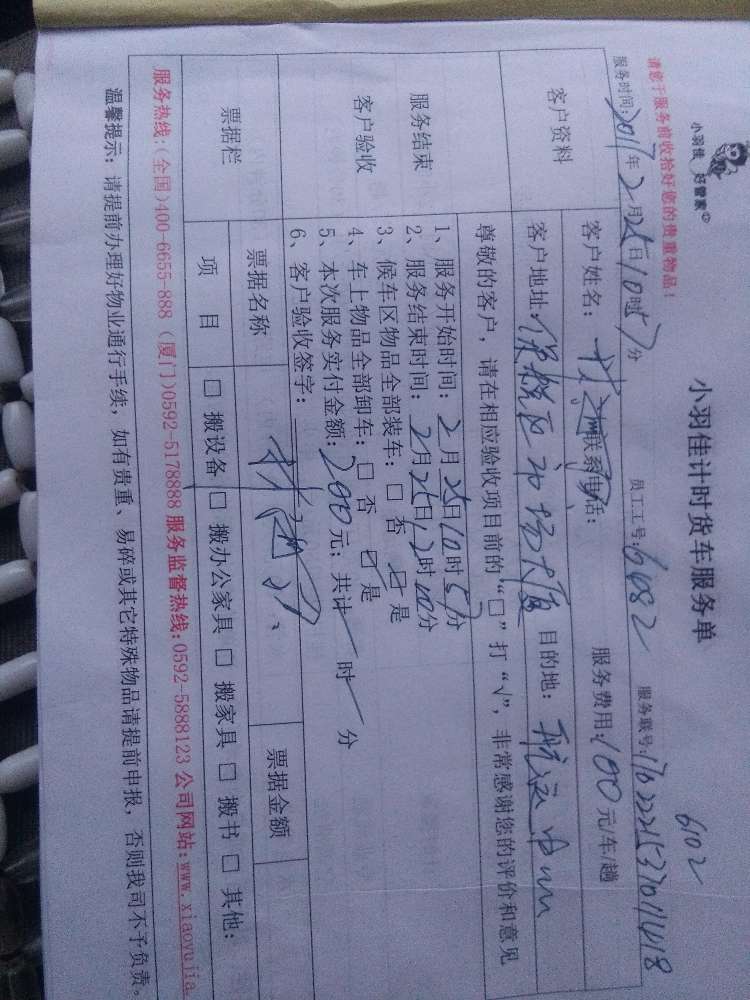 小羽佳 好管家
小羽佳计时货车服务单
6102
请您于服务前收拾好您的贵重物品!
服务时间:2017年2月25日10时57分 员工工号:6482 服务联号:
客户资料
客户姓名: 联系电话: 服务费用:100元/车/趟
客户地址:保税区 目的地:
服务结束
客户验收
尊敬的客户,请在相应验收项目前的“□”打“√”,非常感谢您的评价和意见
1、服务开始时间:2月25日10时57分
2、服务结束时间:2月25日12时00分
3、候车区物品全部装车:□ 否 ☑ 是
4、车上物品全部卸车:□ 否 ☑ 是
5、本次服务实付金额:200元;共计 时 分
6、客户验收签字:
票据栏
票据名称 票据金额
项 目 □ 搬设备 □ 搬办公家具 □ 搬家具 □ 搬书 □ 其他:
服务热线:(全国)400-6655-888 (厦门)0592-5178888 服务监督热线:0592-5888123 公司网站:www.xiaoyujia.
温馨提示:请提前办理好物业通行手续,如有贵重、易碎或其它特殊物品请提前申报,否则我司不予负责。